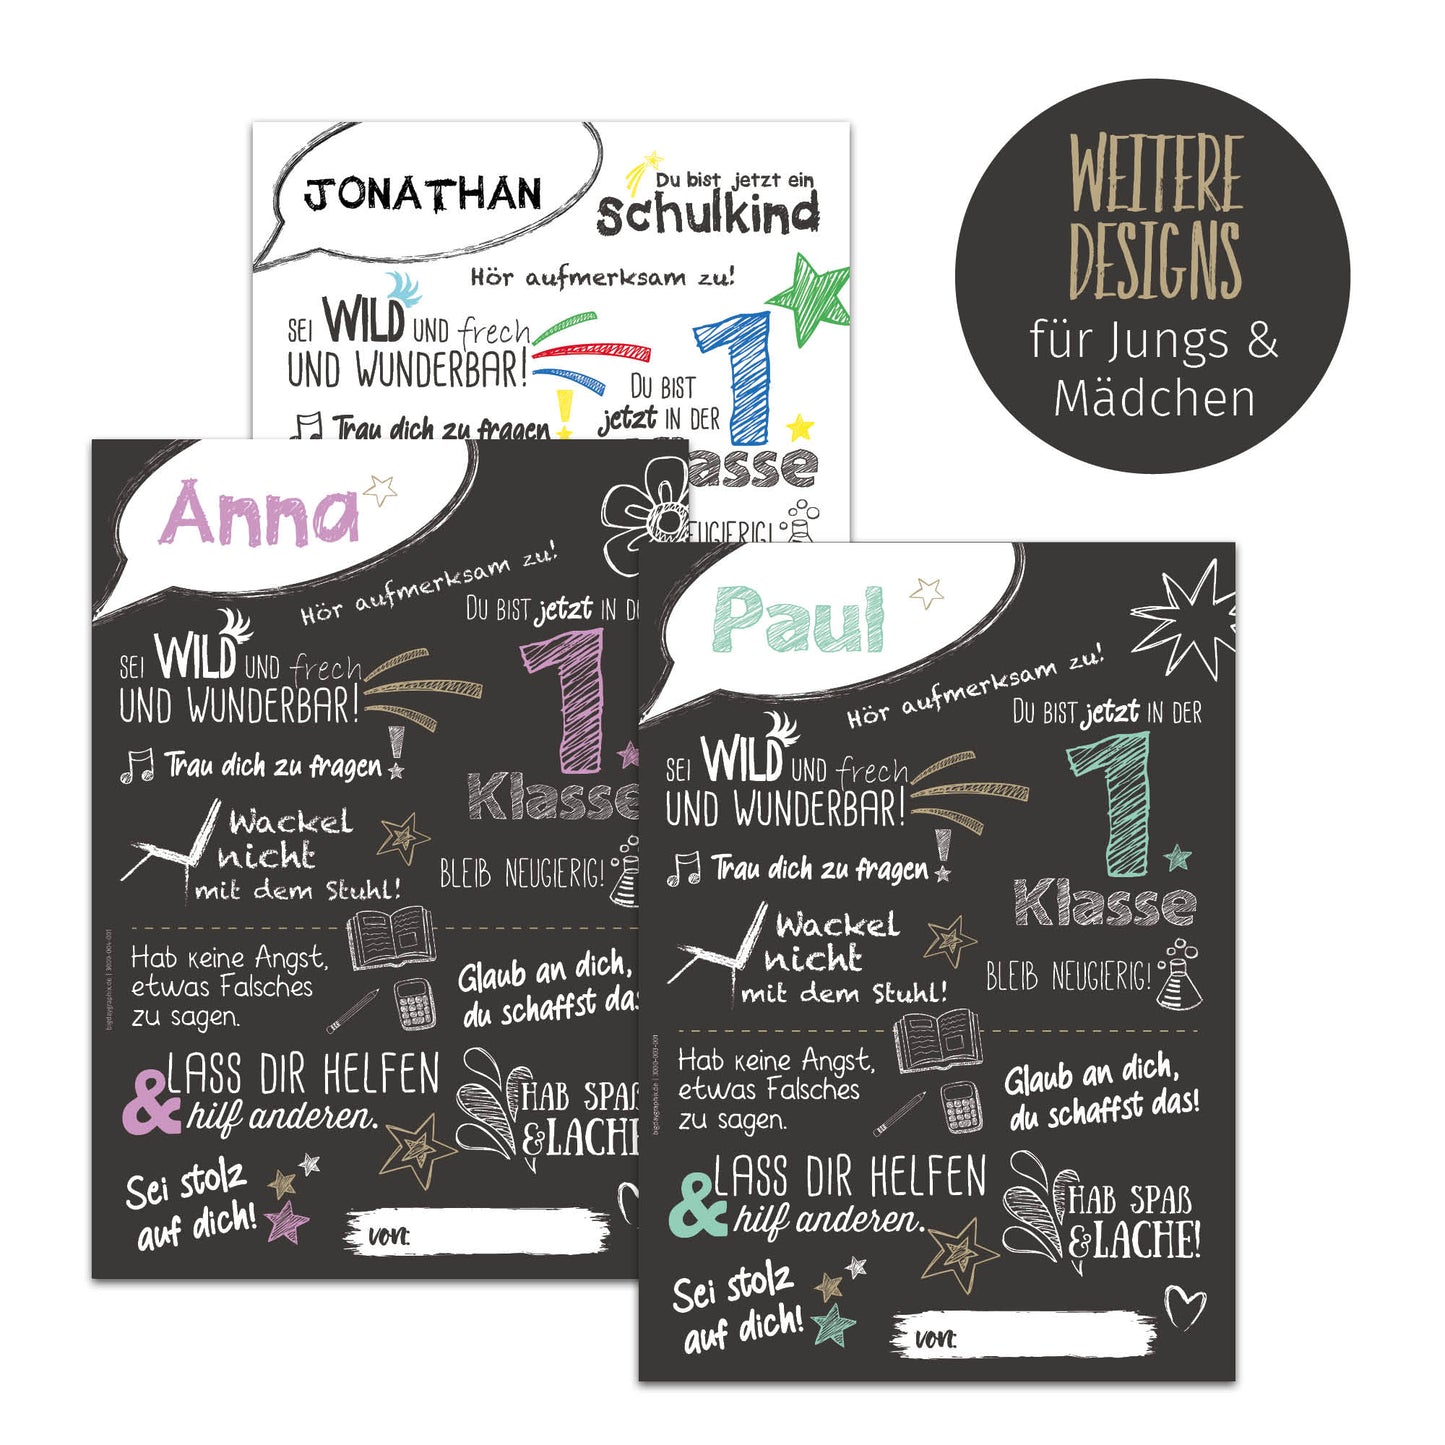 WEITERE
DESIGNS
für Jungs &
Mädchen
JONATHAN
Du bist jetzt ein
Schulkind
Hör aufmerksam zu!
SEI WILD UND frech
UND WUNDERBAR!
Trau dich zu fragen!
DU BIST
jetzt IN DER
1
Anna
Hör aufmerksam zu!
DU BIST jetzt IN
SEI WILD UND frech
UND WUNDERBAR!
1
Klasse
Trau dich zu fragen!
Wackel
nicht
mit dem Stuhl!
BLEIB NEUGIERIG!
Hab keine Angst,
etwas Falsches
zu sagen.
Glaub an dich,
du schaffst das
& LASS DIR HELFEN
hilf anderen.
HAB
&
Sei stolz
auf dich!
von:
bigdaygraphix.de | 3000-004-001
Paul
Hör aufmerksam zu!
DU BIST jetzt IN DER
1
Klasse
SEI WILD UND frech
UND WUNDERBAR!
Trau dich zu fragen!
Wackel
nicht
mit dem Stuhl!
BLEIB NEUGIERIG!
Hab keine Angst,
etwas Falsches
zu sagen.
Glaub an dich,
du schaffst das!
& LASS DIR HELFEN
hilf anderen.
HAB SPAß
& LACHE!
Sei stolz
auf dich!
von:
bigdaygraphix.de | 3000-003-001